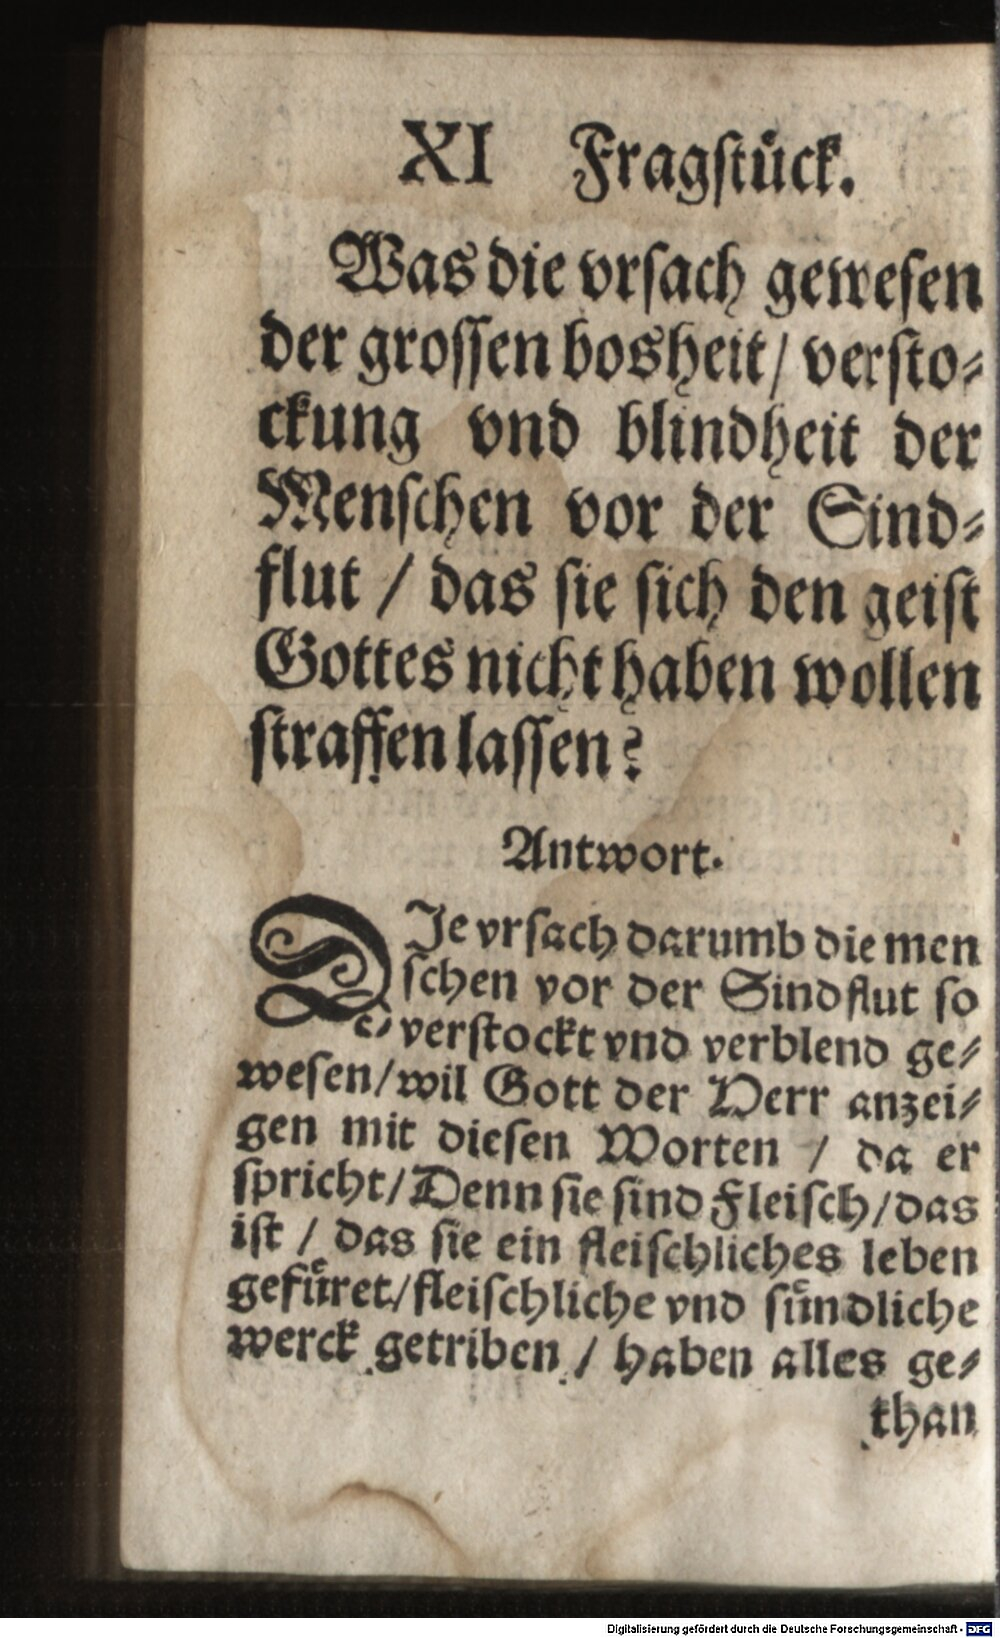 XI Fragſtuͤck.
Was die vrſach geweſen
der groſſen bosheit / verſto⸗
ckung vnd blindheit der
Menſchen vor der Sind⸗
flut / das ſie ſich den geiſt
Gottes nicht haben wollen
ſtraffen laſſen?
Antwort.
DIe vrſach darumb die men
ſchen vor der Sindflut ſo
verſtockt vnd verblend ge⸗
weſen / wil Gott der Herr anzei⸗
gen mit dieſen Worten / da er
ſpricht / Denn ſie ſind Fleiſch / das
iſt / das ſie ein fleiſchliches leben
gefuͤret / fleiſchliche vnd ſuͤndliche
werck getriben / haben alles ge⸗
than
Digitalisierung gefördert durch die Deutsche Forschungsgemeinschaft - DFG